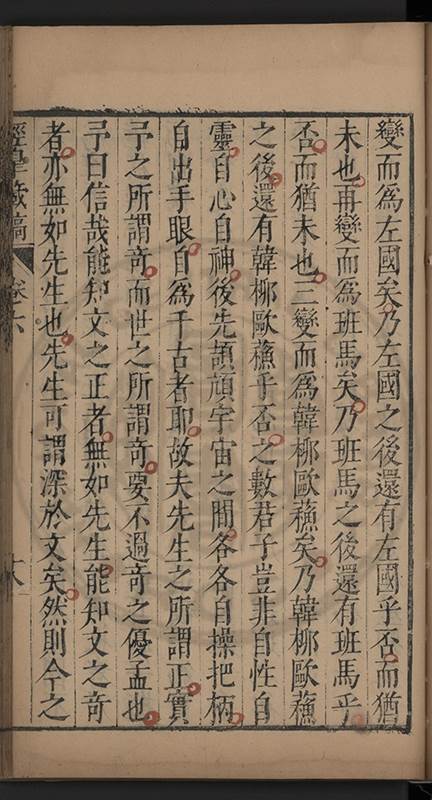 變而爲左國矣乃左國之後還有左國乎否而猶
未也再變而爲班馬矣乃班馬之後還有班馬乎
否而猶未也三變而爲韓柳歐蘓矣乃韓柳歐蘓
之後還有韓柳歐蘓乎否之數君子豈非自性自
靈自心自神後先頡頏宇宙之間各各自操把柄
自出手眼自爲千古者耶故夫先生之所謂正實
予之所謂竒而世之所謂竒要不過竒之優孟也
予曰信哉能知文之正者無如先生能知文之竒
者亦無如先生也先生可謂深於文矣然則今之
經臯藏稿
卷六
十八